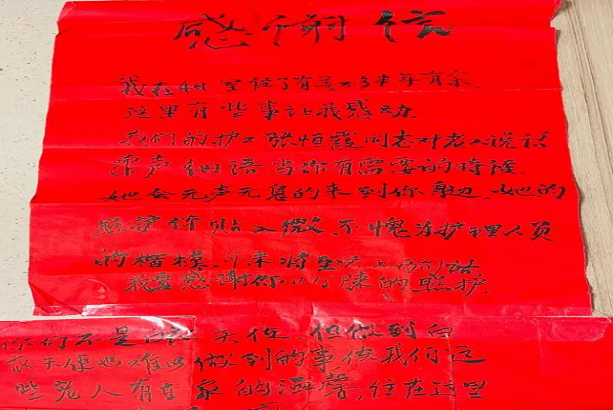 感谢信
我在和 住了有 多 年有余
这里有些事让我感动.
我们的护工张恒霞同志对老人说话
柔声细语.当你有需要的时候.
她会无声无息的来到你身边.她的
照护体贴入微.不愧为护理人员
的楷模.
我要感谢你 的照护.
你们不是白衣天使.但做到白
衣天使也难以做到的事使我们这
些老人有在家的温馨,住在这里